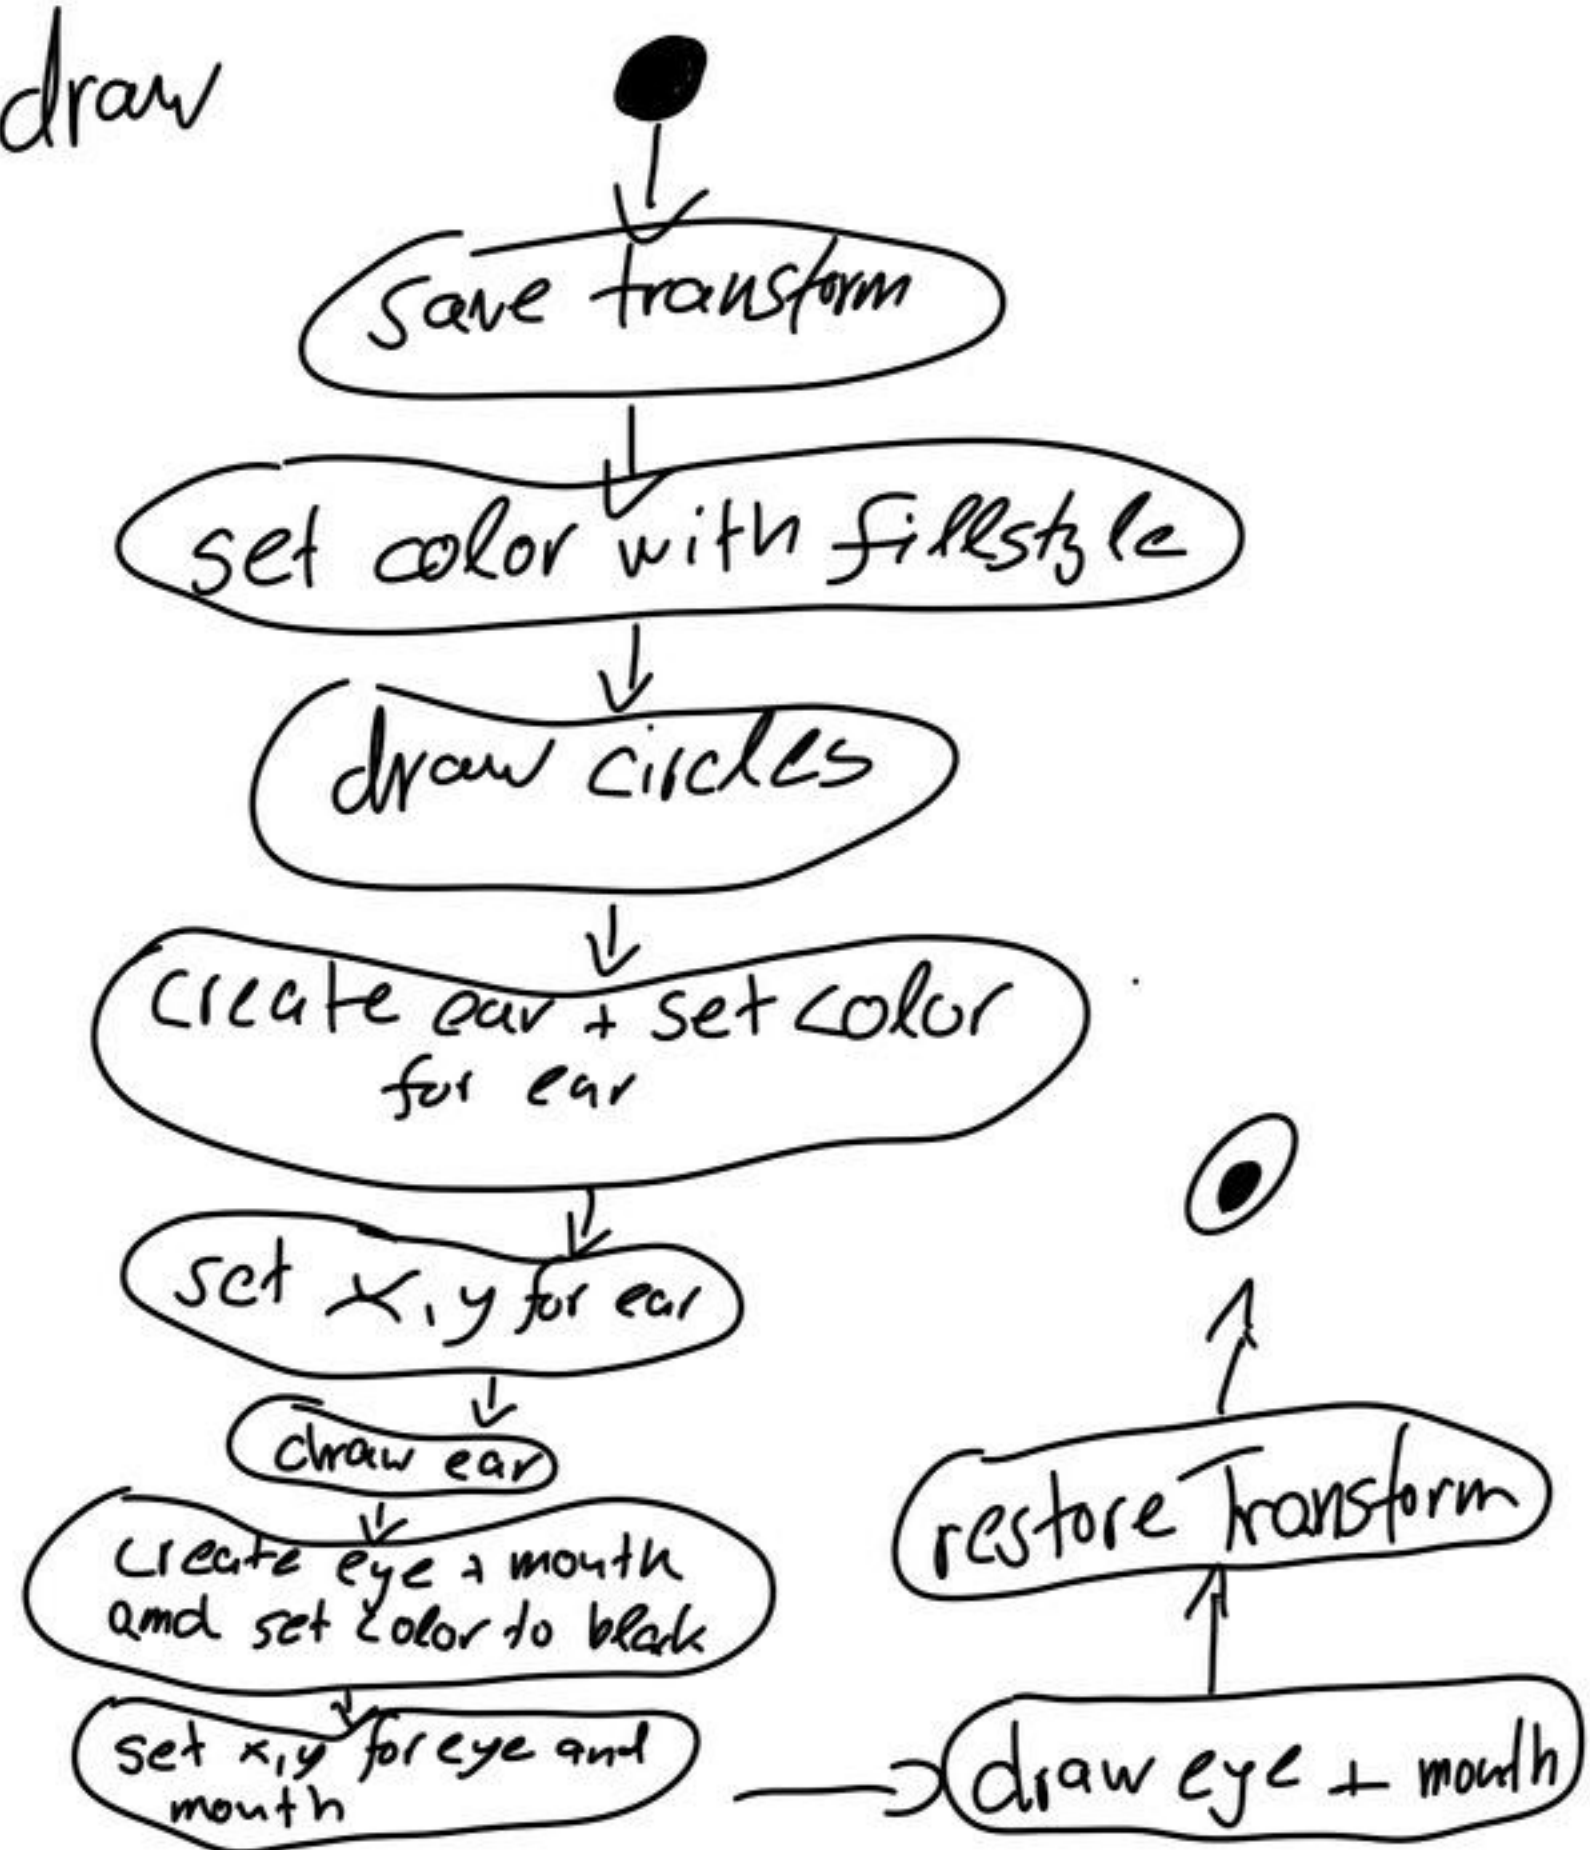 draw
save transform
set color with fillstyle
draw circles
create ear + set color
for ear
set x, y for ear
draw ear
create eye + mouth
and set color to black
set x,y for eye and
mouth
draw eye + mouth
restore Transform